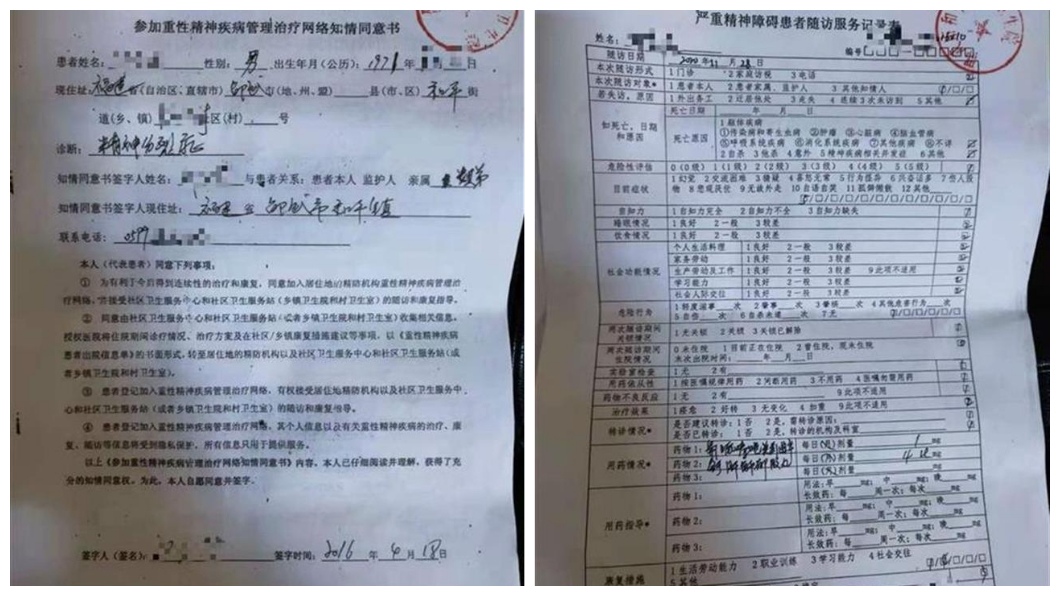 参加重性精神疾病管理治疗网络知情同意书
患者姓名: 性别: 男 出生年月(公历): 1971 年
现住址: 福建省(自治区、直辖市) 邵武市(地、州、盟) 县(市、区) 和平街
道(乡、镇) 社区(村) 号
诊断: 精神分裂症
知情同意书签字人姓名: 与患者关系: 患者本人 监护人 亲属
知情同意书签字人现住址: 福建省邵武市和平镇
联系电话: 0599
本人(代表患者)同意下列事项:
① 为有利于今后得到连续性的治疗和康复,同意加入居住地的精防机构重性精神疾病管理治
疗网络,并接受社区卫生服务中心和社区卫生服务站(乡镇卫生院和村卫生室)的随访和康复指导。
② 同意由社区卫生服务中心和社区卫生服务站(或者乡镇卫生院和村卫生室)收集相关信息,
授权医院将住院期间诊疗情况、治疗方案及在社区/乡镇康复措施建议等事项,以《重性精神疾病
患者出院信息单》的书面形式,转至居住地的精防机构以及社区卫生服务中心和社区卫生服务站(或
者乡镇卫生院和村卫生室)。
③ 患者登记加入重性精神疾病管理治疗网络,有权接受居住地精防机构以及社区卫生服务中
心和社区卫生服务站(或者乡镇卫生院和村卫生室)的随访和康复指导。
④ 患者登记加入重性精神疾病管理治疗网络,其个人信息以及有关重性精神疾病的治疗、康
复、随访等信息将受到隐私保护,所有信息只用于提供服务。
以上《参加重性精神疾病管理治疗网络知情同意书》内容,本人已仔细阅读并理解,获得了充
分的知情同意权,为此,本人自愿同意并签字。
签字人(签名): 签字时间: 2016 年 4 月 18 日
严重精神障碍患者随访服务记录表
姓名: 编号
随访日期 年 11 月 28 日
本次随访形式 1 门诊 2 家庭访视 3 电话
本次随访对象* 1 患者本人 2 患者家属、监护人 3 其他知情人
若失访,原因 1 外出务工 2 迁居他处 3 走失 4 连续 3 次未访到 5 其他
如死亡,日期和原因 死亡日期 年 月 日
死亡原因 1 躯体疾病
①传染病和寄生虫病 ②肿瘤 ③心脏病 ④脑血管病
⑤呼吸系统疾病 ⑥消化系统疾病 ⑦其他疾病 ⑧不详
2 自杀 3 他杀 4 意外 5 精神疾病相关并发症 6 其他
危险性评估 0 (0 级) 1(1 级) 2(2 级) 3(3 级) 4(4 级) 5(5 级)
目前症状 1 幻觉 2 交流困难 3 猜疑 4 喜怒无常 5 行为怪异 6 兴奋话多 7 伤人毁
物 8 悲观厌世 9 无故外走 10 自语自笑 11 孤僻懒散 12 其他
自知力 1 自知力完全 2 自知力不全 3 自知力缺失
睡眠情况 1 良好 2 一般 3 较差
饮食情况 1 良好 2 一般 3 较差
社会功能情况 个人生活料理 1 良好 2 一般 3 较差
家务劳动 1 良好 2 一般 3 较差
生产劳动及工作 1 良好 2 一般 3 较差 9 此项不适用
学习能力 1 良好 2 一般 3 较差
社会人际交往 1 良好 2 一般 3 较差
危险行为 1 轻度滋事 次 2 肇事 次 3 肇祸 次 4 其他危害行为 次
5 自伤 次 6 自杀未遂 次 7 无
两次随访期间关锁情况 1 无关锁 2 关锁 3 关锁已解除
两次随访期间住院情况 0 未住院 1 目前正在住院 2 曾住院,现未住院
末次出院时间: 年 月 日
实验室检查 1 无 2 有
用药依从性 1 按医嘱规律用药 2 间断用药 3 不用药 4 医嘱勿需用药
药物不良反应 1 无 2 有 9 此项不适用
治疗效果 1 痊愈 2 好转 3 无变化 4 加重 9 此项不适用
转诊情况* 是否建议转诊: 1 否 2 是,需转诊原因:
是否已转诊: 1 否 2 是,转诊的机构及科室
用药情况* 药物1: 每日(月)剂量 mg
药物2: 每日(月)剂量 mg
药物3: 每日(月)剂量 mg
用药指导* 药物1: 用法:早 mg; 中 mg; 晚 mg
长效药: 每 周一次; 每次 mg
药物2: 用法:早 mg; 中 mg; 晚 mg
长效药: 每 周一次; 每次 mg
药物3: 用法:早 mg; 中 mg; 晚 mg
长效药: 每 周一次; 每次 mg
康复措施 1 生活劳动能力 2 职业训练 3 学习能力 4 社会交往
5 其他